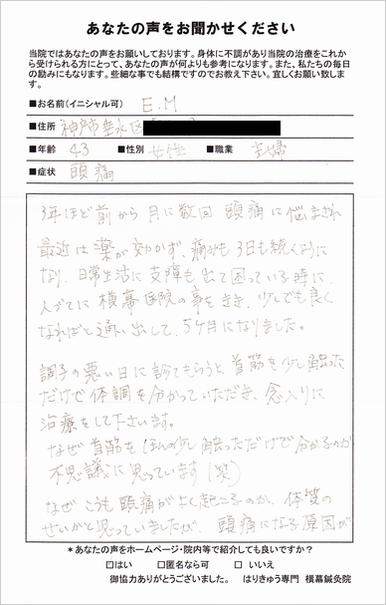 あなたの声をお聞かせください
当院ではあなたの声をお願いしております。身体に不調があり当院の治療をこれか
ら受けられる方にとって、あなたの声が何よりも参考になります。また、私たちの毎日
の励みにもなります。些細な事でも結構ですのでお教え下さい。宜しくお願い致しま
す。
■お名前(イニシャル可) E.M
■住所 神戸市垂水区
■年齢 43 ■性別 女性 ■職業 主婦
■症状 頭痛
3年ほど前から 月に数回 頭痛に悩まされ
最近は薬が効かず、痛みも3日も続くように
なり、日常生活に支障も出て困っている時に、
人づてに横幕医院の事をきき、少しでも良く
なればと通い出して、5ヶ月になりました。
調子の悪い日に診てもらうと、首筋を少し触った
だけで体調を分かっていただき、念入りに
治療をして下さいます。
なぜ首筋をほんの少し触っただけで分かるのか
不思議に思っています(笑)
なぜこうも頭痛がよく起こるのか、体質の
せいかと思っていましたが、頭痛になる原因が
*あなたの声をホームページ・院内等で紹介しても良いですか?
□はい □匿名なら可 □いいえ
御協力ありがとうございました。 はりきゅう専門 横幕鍼灸院